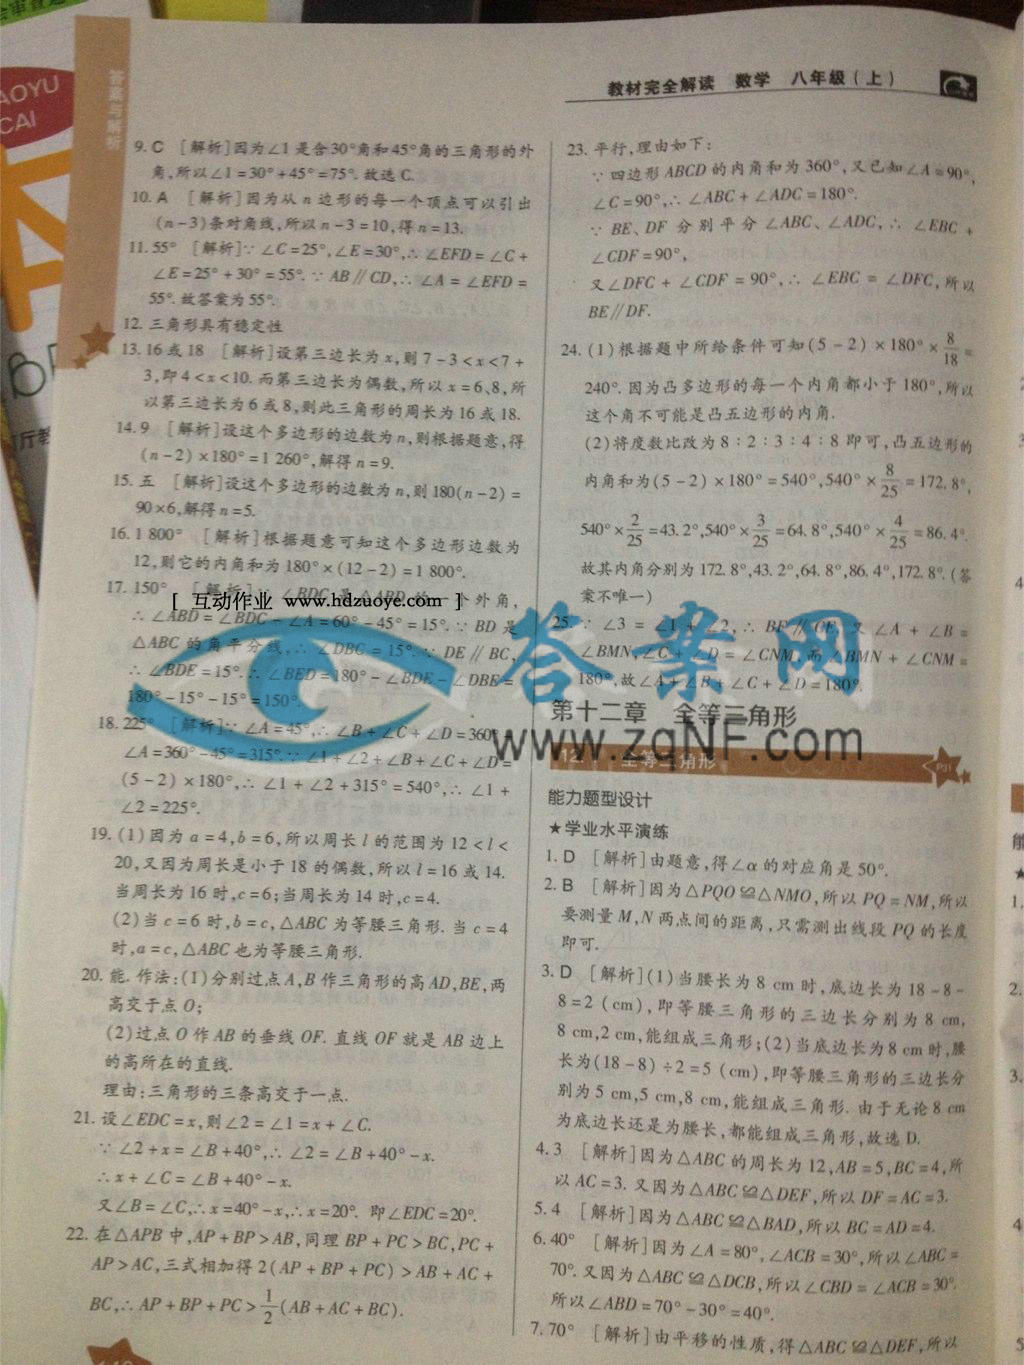 教材完全解读 数学 八年级(上)
答案与解析
9. C [解析]因为∠1是含30°角和45°角的三角形的外
角,所以∠1=30°+45°=75°. 故选C.
10. A [解析]因为从 n 边形的每一个顶点可以引出
(n-3)条对角线,所以n-3=10,得n=13.
11. 55° [解析]∵∠C=25°,∠E=30°,∴∠EFD=∠C+
∠E=25°+30°=55°. ∵AB∥CD,∴∠A=∠EFD=
55°. 故答案为55°.
12. 三角形具有稳定性
13. 16或18 [解析]设第三边长为x,则7-3<x<7+
3,即4<x<10. 而第三边长为偶数,所以x=6、8,所
以第三边长为6或8,则此三角形的周长为16或18.
14. 9 [解析]设这个多边形的边数为n,则根据题意,得
(n-2)×180°=1 260°,解得n=9.
15. 五 [解析]设这个多边形的边数为n,则180(n-2)=
90×6,解得n=5.
16. 1 800° [解析]根据题意可知这个多边形边数为
12,则它的内角和为180°×(12-2)=1 800°.
17. 150° [解析] ∠BDC是△ABD的一个外角,
[ 互动作业 www.hdzuoye.com ]
∴∠ABD=∠BDC-∠A=60°-45°=15°. ∵BD是
△ABC的角平分线,∴∠DBC=15°. ∵DE∥BC,
∴∠BDE=15°. ∴∠BED=180°-∠BDE-∠DBE=
180°-15°-15°=150°.
18. 225° [解析]∵∠A=45°,∴∠B+∠C+∠D=360°-
∠A=360°-45°=315°. ∵∠1+∠2+∠B+∠C+∠D=
(5-2)×180°,∴∠1+∠2+315°=540°,∴∠1+
∠2=225°.
19. (1)因为a=4,b=6,所以周长l的范围为12<l<
20,又因为周长是小于18的偶数,所以l=16或14.
当周长为16时,c=6;当周长为14时,c=4.
(2)当c=6时,b=c,△ABC为等腰三角形. 当c=4
时,a=c,△ABC也为等腰三角形.
20. 能. 作法:(1)分别过点A,B作三角形的高AD,BE,两
高交于点O;
(2)过点O作AB的垂线OF. 直线OF就是AB边上
的高所在的直线.
理由:三角形的三条高交于一点.
21. 设∠EDC=x,则∠2=∠1=x+∠C.
∵∠2+x=∠B+40°,∴∠2=∠B+40°-x.
∴x+∠C=∠B+40°-x.
又∠B=∠C,∴x=40°-x,∴x=20°. 即∠EDC=20°.
22. 在△APB中,AP+BP>AB,同理BP+PC>BC,PC+
AP>AC,三式相加得2(AP+BP+PC)>AB+AC+
BC,∴AP+BP+PC>1/2(AB+AC+BC).
23. 平行,理由如下:
∵四边形ABCD的内角和为360°,又已知∠A=90°,
∠C=90°,∴∠ABC+∠ADC=180°.
∵BE、DF分别平分∠ABC、∠ADC,∴∠EBC+
∠CDF=90°,
又∠DFC+∠CDF=90°,∴∠EBC=∠DFC,所以
BE∥DF.
24. (1)根据题中所给条件可知(5-2)×180°×8/18=
240°. 因为凸多边形的每一个内角都小于180°,所以
这个角不可能是凸五边形的内角.
(2)将度数比改为8:2:3:4:8即可,凸五边形的
内角和为(5-2)×180°=540°,540°×8/25=172.8°,
540°×2/25=43.2°,540°×3/25=64.8°,540°×4/25=86.4°.
故其内角分别为172.8°,43.2°,64.8°,86.4°,172.8°. (答
案不唯一)
25. ∵∠3=∠1+∠2,∴BE∥CF,又∠A+∠B=
∠BMN,∠C+∠D=∠CNM,而∠BMN+∠CNM=
180°,故∠A+∠B+∠C+∠D=180°.
答案网
www.zqNF.com
第十二章 全等三角形
12.1 全等三角形
P31
能力题型设计
★学业水平演练
1. D [解析]由题意,得∠α的对应角是50°.
2. B [解析]因为△PQO≌△NMO,所以PQ=NM,所以
要测量M,N两点间的距离,只需测出线段PQ的长度
即可.
3. D [解析](1)当腰长为8 cm时,底边长为18-8-
8=2(cm),即等腰三角形的三边长分别为8 cm,
8 cm,2 cm,能组成三角形;(2)当底边长为8 cm时,腰
长为(18-8)÷2=5(cm),即等腰三角形的三边长分
别为5 cm,5 cm,8 cm,能组成三角形. 由于无论8 cm
为底边长还是为腰长,都能组成三角形,故选D.
4. 3 [解析]因为△ABC的周长为12,AB=5,BC=4,所
以AC=3. 又因为△ABC≌△DEF,所以DF=AC=3.
5. 4 [解析]因为△ABC≌△BAD,所以BC=AD=4.
6. 40° [解析]因为∠A=80°,∠ACB=30°,所以∠ABC=
70°. 又因为△ABC≌△DCB,所以∠CBD=∠ACB=30°.
所以∠ABD=70°-30°=40°.
7. 70° [解析]由平移的性质,得△ABC≌△DEF,所以